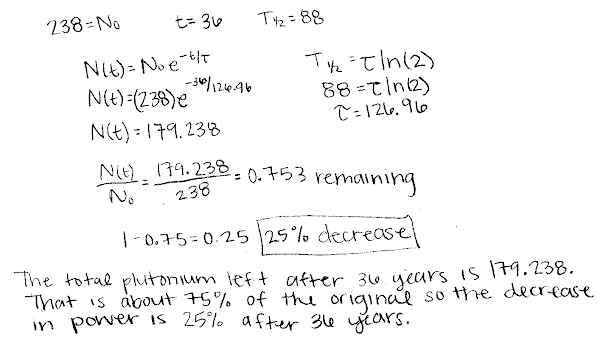 238=N₀ t=36 T½=88
N(t)=N₀e^(-t/τ) T½=τln(2)
N(t)=(238)e^(-36/126.96) 88=τln(2)
N(t)=179.238 τ=126.96
N(t)/N₀ = 179.238/238 = 0.753 remaining
1-0.75=0.25 25% decrease
The total plutonium left after 36 years is 179.238.
That is about 75% of the original so the decrease
in power is 25% after 36 years.